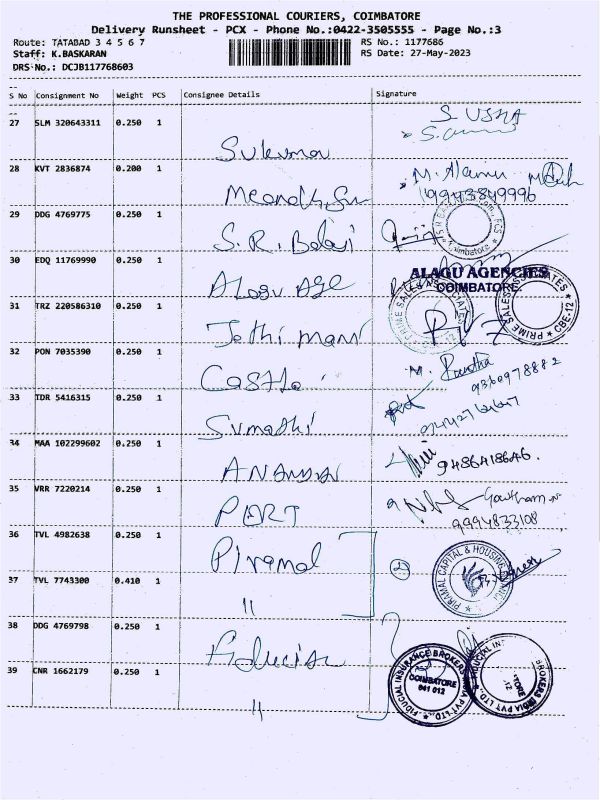 THE PROFESSIONAL COURIERS, COIMBATORE
Delivery Runsheet - PCX - Phone No.:0422-3505555 - Page No.:3
Route: TATABAD 3 4 5 6 7 RS No.: 1177686
Staff: K.BASKARAN RS Date: 27-May-2023
DRS No.: DCJB117768603
S No Consignment No Weight PCS Consignee Details Signature
27 SLM 320643311 0.250 1 S USHA
28 KVT 2836874 0.200 1 M. Alamu
9943849996
29 DDG 4769775 0.250 1 S.R. Balaji
30 EDQ 11769990 0.250 1 Alagu Age ALAGU AGENCIES
COIMBATORE
31 TRZ 220586310 0.250 1 Jethi mani PRIME SALES ASSOCIATES CBE-12
32 PON 7035390 0.250 1 M.
9360978882
33 TDR 5416315 0.250 1 Sumathi
34 MAA 102299602 0.250 1 ANANDAN 9486418646.
35 VRR 7220214 0.250 1 PORT Gowtham
9994833108
36 TVL 4982638 0.250 1 Piramal 2 PIRAMAL CAPITAL & HOUSING
37 TVL 7743300 0.410 1 "
38 DDG 4769798 0.250 1 Fiducial
39 CNR 1662179 0.250 1 " FIDUCIAL INSURANCE BROKERS INDIA PVT LTD.,
COIMBATORE
641 012